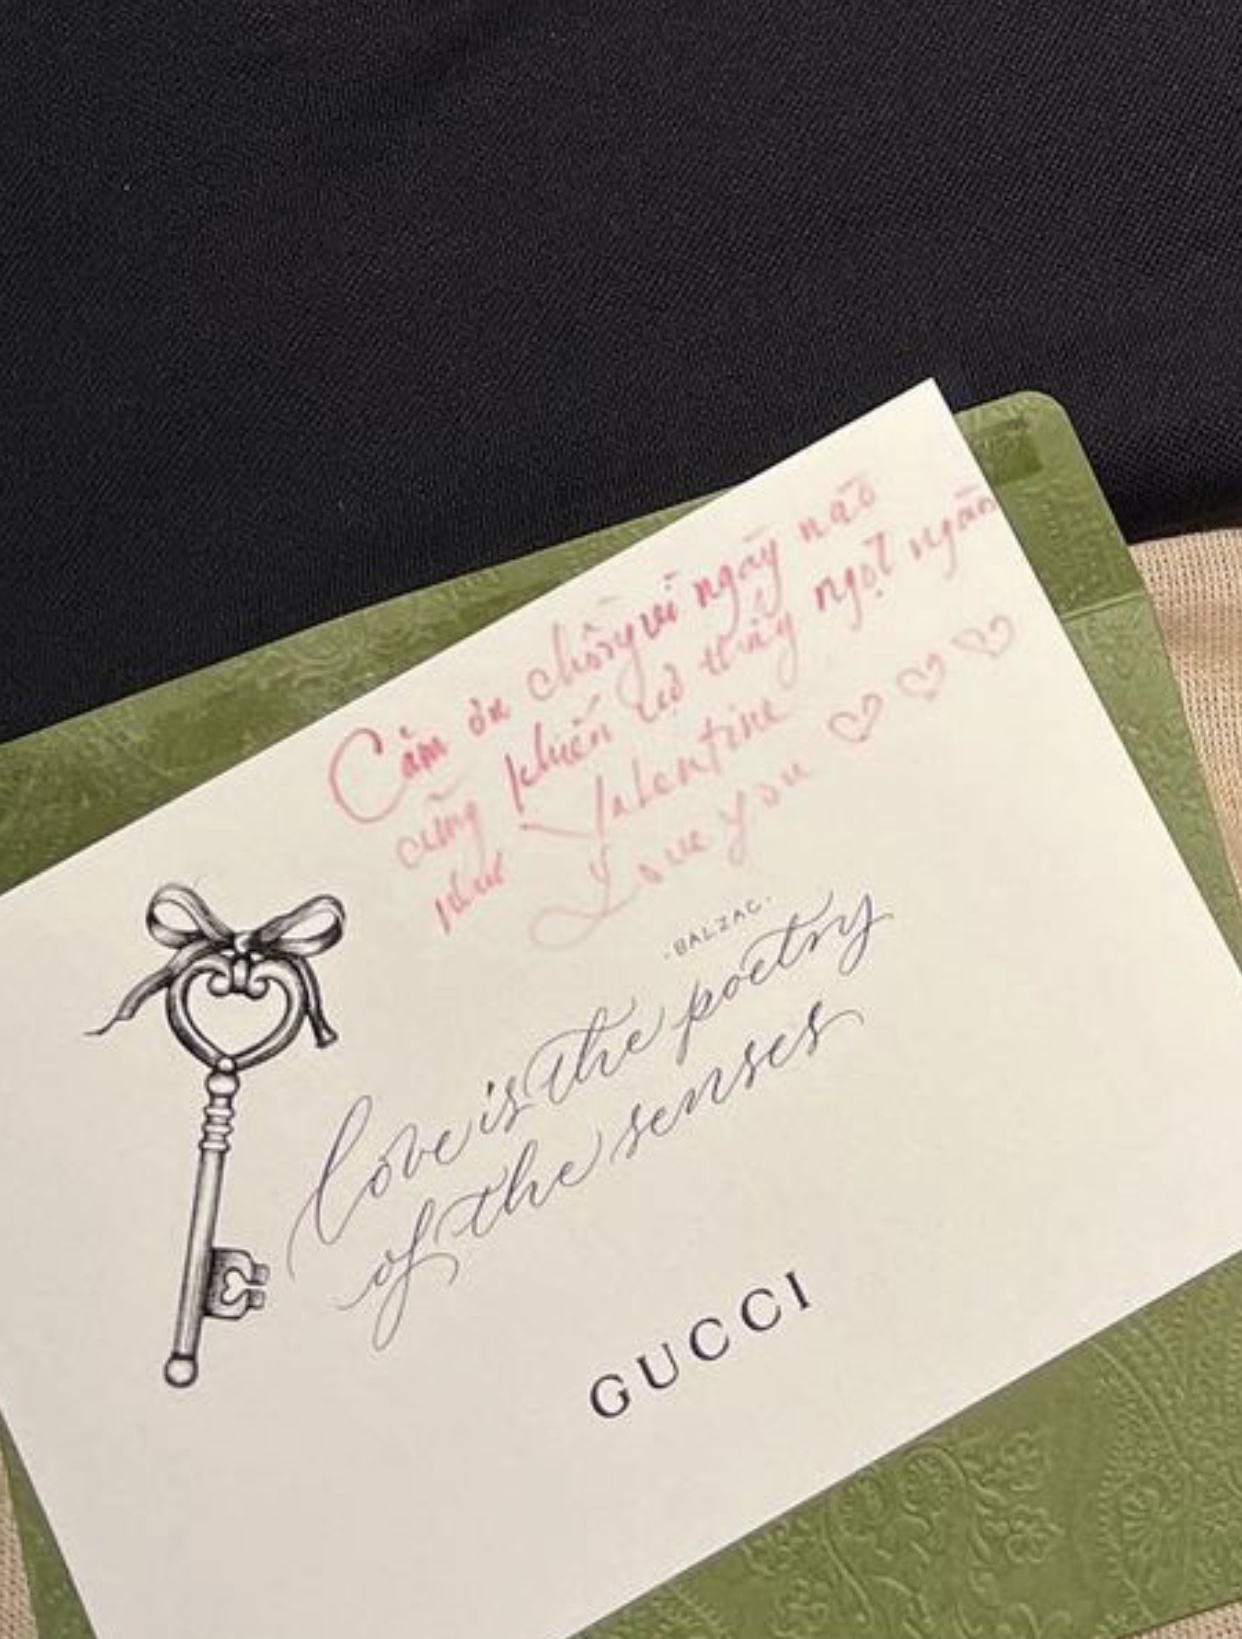 Cảm ơn chồng vì ngày nào
cũng khiến vợ thấy ngọt ngào
như Valentine
Love you
·BALZAC·
love is the poetry
of the senses
GUCCI